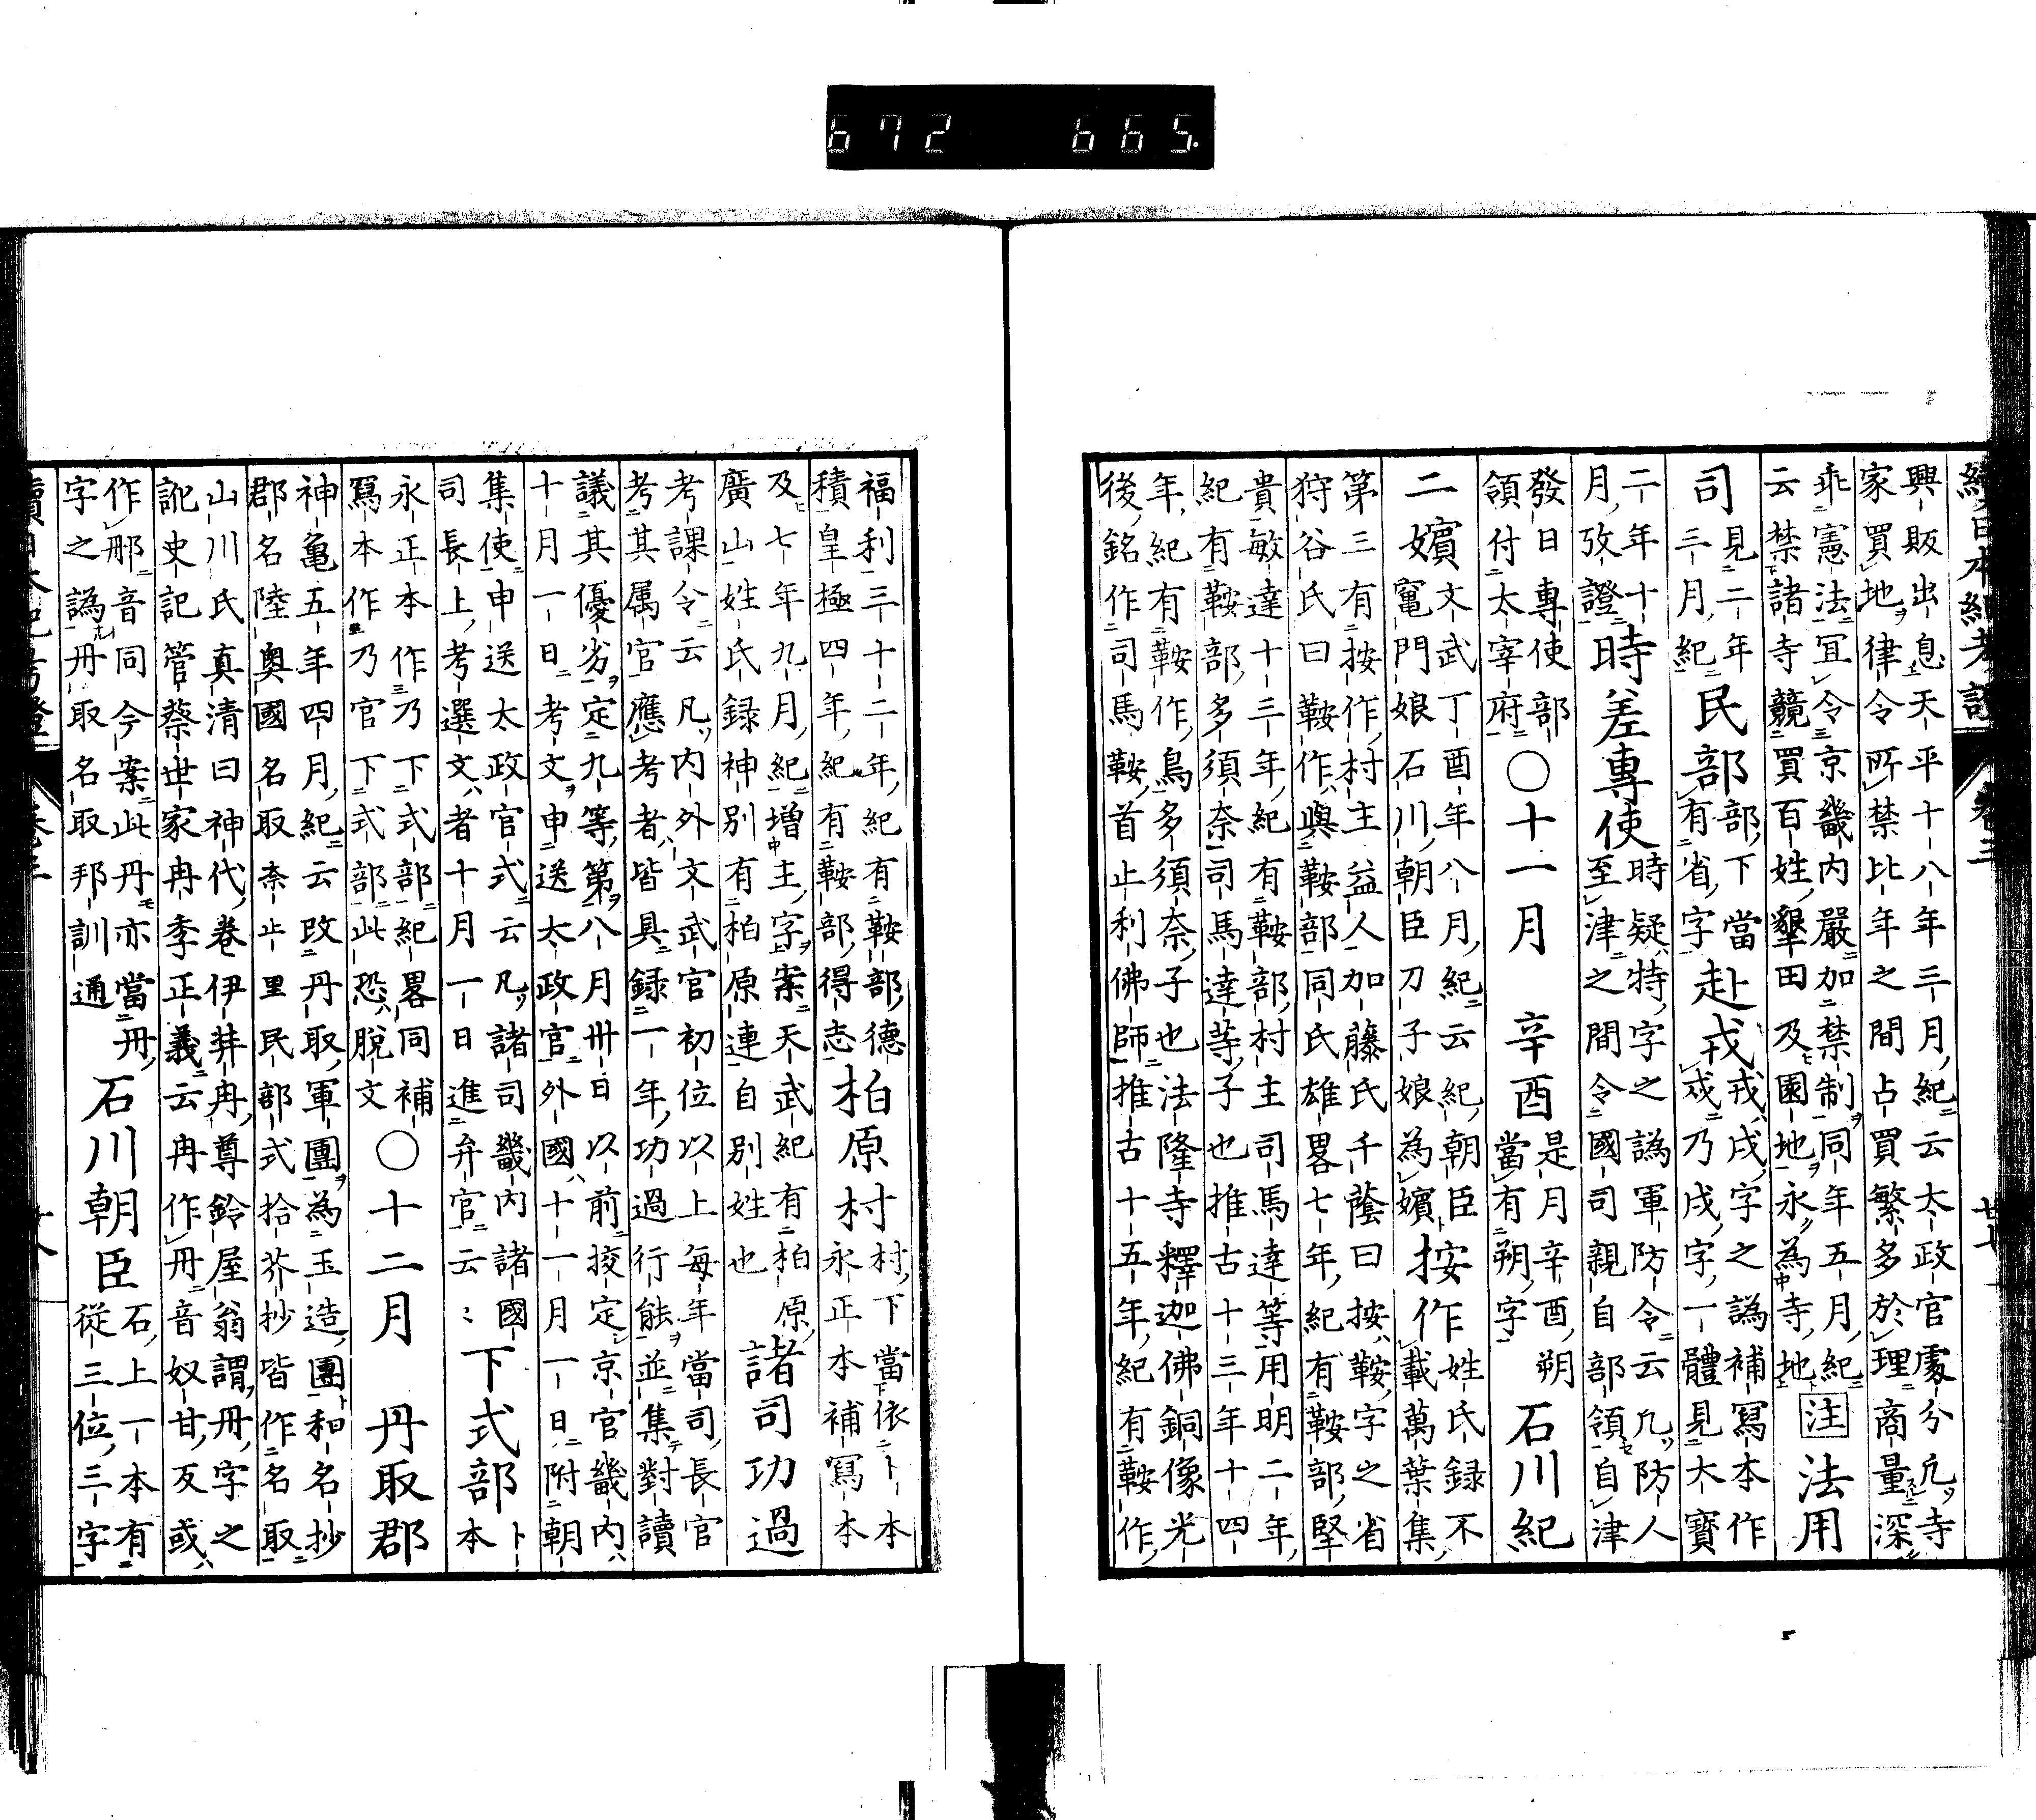 672 665.
續日本紀考證 卷三 廿七
興販出息天平十八年三月紀云太政官處分凡寺
家買地律令所禁比年之間占買繁多於理商量深
乖憲法宜令京畿内嚴加禁制同年五月紀
云禁諸寺競買百姓墾田及園地永為寺地 注 法用
司 見二年
三月紀 民部 部下當
有省字 赴戎 戎戍字之譌補寫本作
戍乃戍字一體見大寶
二年十
月攷證 時差專使 時疑特字之譌軍防令云凡防人
至津之間令國司親自部領自津
發日專使部
領付太宰府 〇十一月 辛酉 是月辛酉朔
當有朔字 石川紀
二嬪 文武丁酉年八月紀云紀朝臣
竃門娘石川朝臣刀子娘為嬪 按作 姓氏録不
載萬葉集
第三有按作村主益人加藤氏千蔭曰按鞍字之省
狩谷氏曰鞍作與鞍部同氏雄畧七年紀有鞍部堅
貴敏達十三年紀有鞍部村主司馬達等用明二年
紀有鞍部多須奈司馬達等子也推古十三年十四
年紀有鞍作鳥多須奈子也法隆寺釋迦佛銅像光
後銘作司馬鞍首止利佛師推古十五年紀有鞍作
福利三十二年紀有鞍部德
積皇極四年紀有鞍部得志 柏原村 村下當依卜本
永正本補寫本
及七年九月紀増主字案天武紀有柏原
廣山姓氏録神別有柏原連自別姓也 諸司功過
考課令云凡内外文武官初位以上每年當司長官
考其属官應考者皆具録一年功過行能並集對讀
議其優劣定九等第八月卅日以前挍定京官畿内
十月一日考文申送太政官外國十一月一日附朝
集使申送太政官式云凡諸司畿内諸國
司長上考選文者十月一日進弁官云〻 下式部 卜本
永正本作乃下式部紀畧同補
寫本作乃官下式部此恐脫文 〇十二月 丹取郡
神亀五年四月紀云改丹取軍團為玉造團和名抄
郡名陸奥國名取奈止里民部式拾芥抄皆作名取
山川氏真清曰神代卷伊弉冉尊鈴屋翁謂冊字之
訛史記管蔡世家冉季正義云冉作冊音奴甘反或
作𨚗音同今案此丹亦當冊
字之譌冊取名取邦訓通 石川朝臣 石上一本有
從三位三字